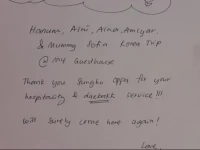 Hanum, Asni, Aina, Amsyar,
& Mummy Sofia Korea Trip
@ My Guesthouse
Thank you Sungho oppa for your
hospitality & service!!!
Will surely come here again!
Love,